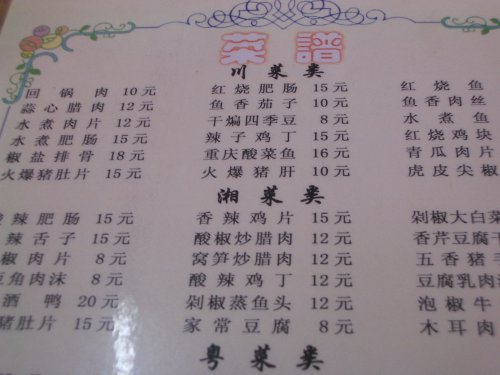 菜譜
川菜类
回锅肉 10元 红烧肥肠 15元 红烧鱼
蒜心腊肉 12元 鱼香茄子 10元 鱼香肉丝
水煮肉片 12元 干煸四季豆 8元 水煮鱼
水煮肥肠 15元 辣子鸡丁 15元 红烧鸡块
椒盐排骨 18元 重庆酸菜鱼 16元 青瓜肉片
火爆猪肚片 15元 火爆猪肝 10元 虎皮尖椒
湘菜类
辣肥肠 15元 香辣鸡片 15元 剁椒大白菜
辣舌子 15元 酸椒炒腊肉 12元 香芹豆腐干
椒肉片 8元 窝笋炒腊肉 12元 五香猪
豆角肉沫 8元 酸辣鸡丁 12元 豆腐乳肉
酒鸭 20元 剁椒蒸鱼头 12元 泡椒牛
猪肚片 15元 家常豆腐 8元 木耳肉
粤菜类